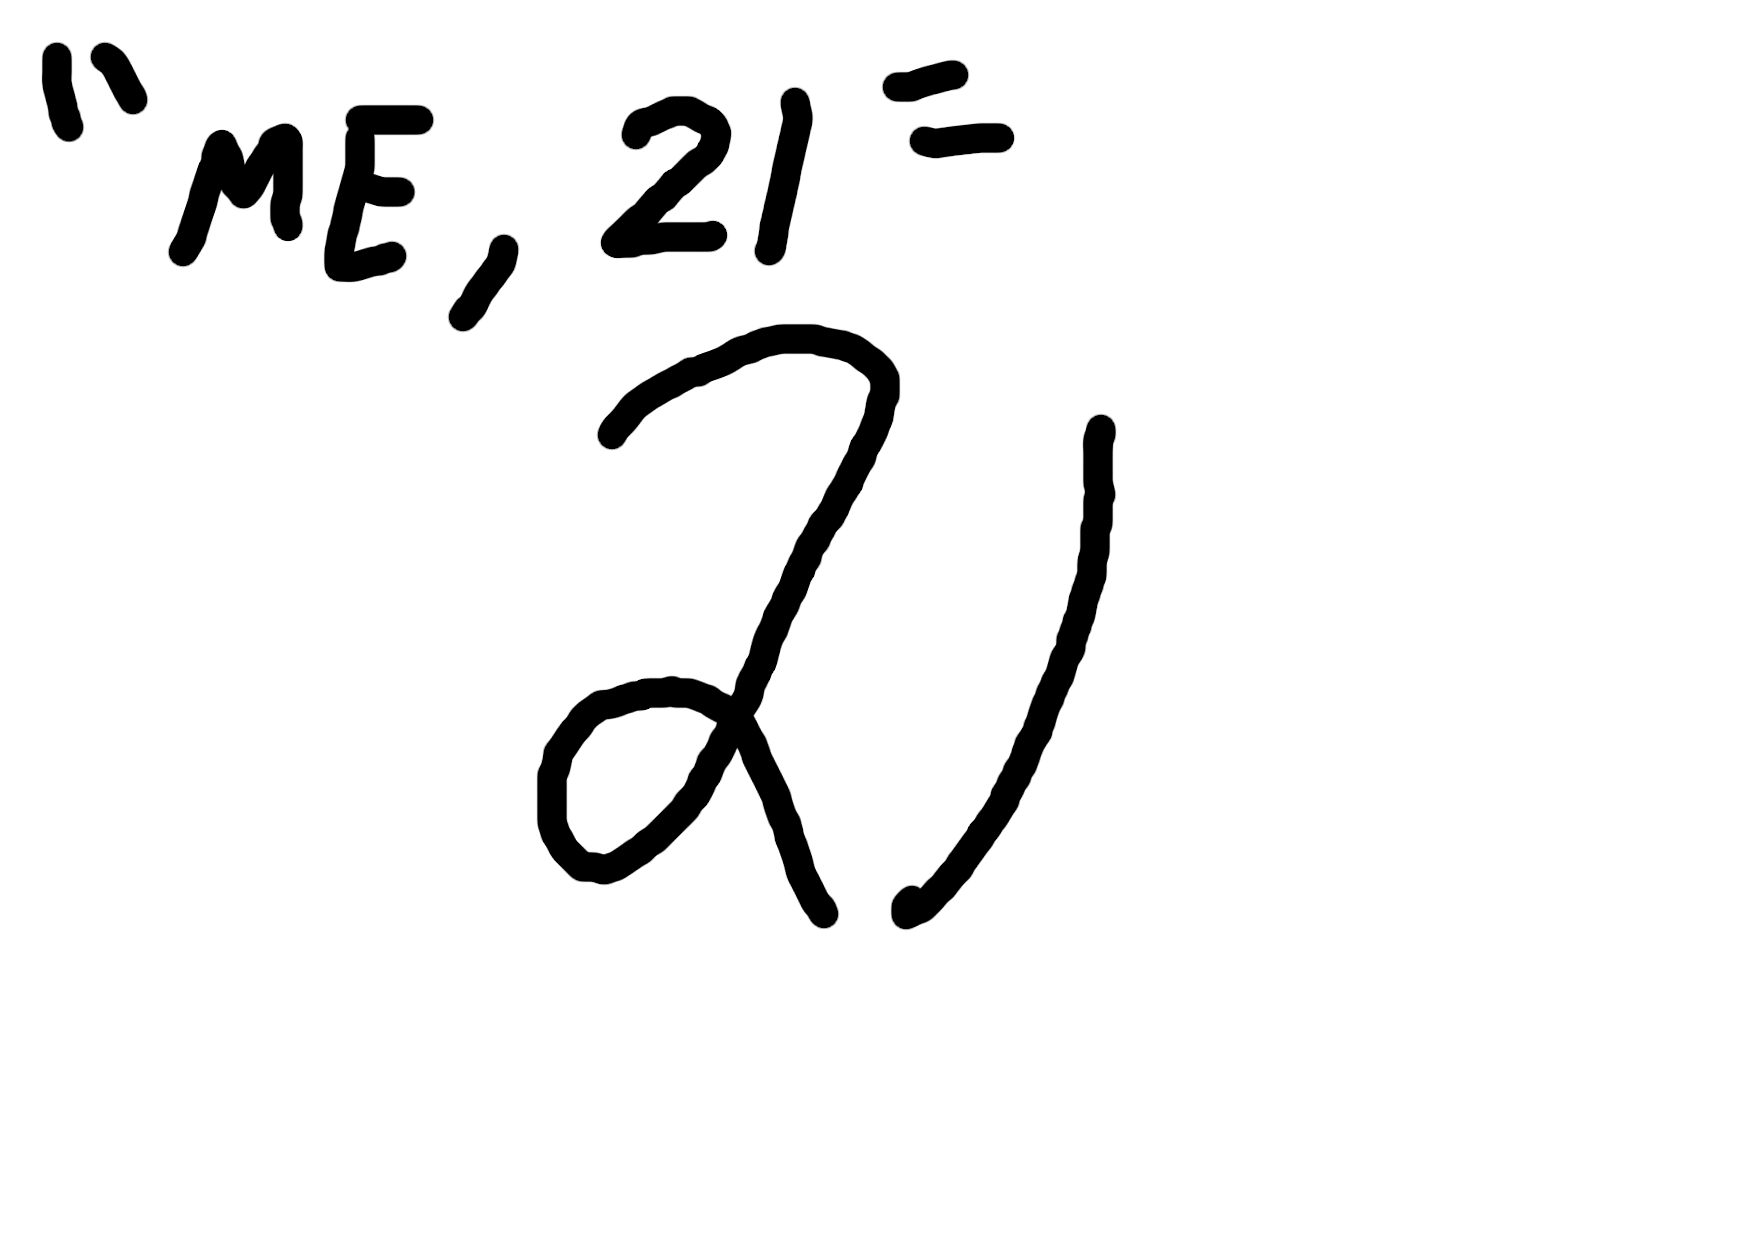 "ME, 21"
21